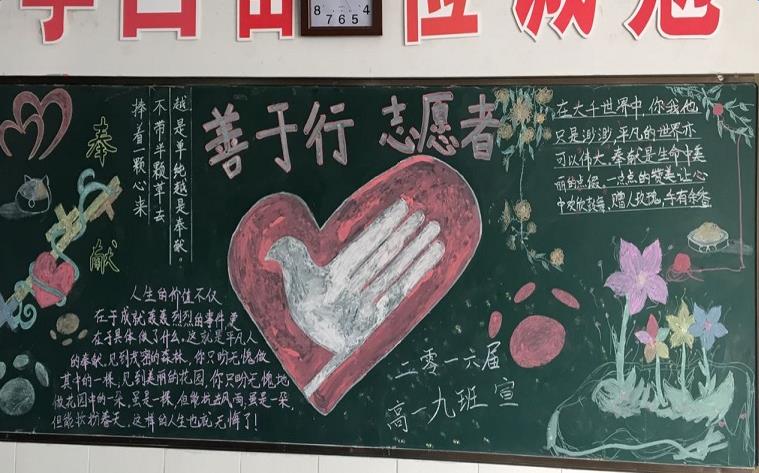 8 7 6 5 4
善于行 志愿者
奉献
越是单纯越是奉献。
不带半颗草去
捧着一颗心来
在大千世界中,你我他
只是渺渺,平凡的世界亦
可以伟大,奉献是生命中美
丽的点缀,一点点的赞美,让心
中欢欣鼓舞,赠人玫瑰,手有余香
人生的价值不仅
在于成就轰轰烈烈的事件,更
在于具体做了什么,这就是平凡人
的奉献,见到茂密的森林,你只盼无愧做
其中的一棵,见到美丽的花园,你只盼无愧地
做花园中的一朵,虽是一棵,但能抗击风雨,虽是一朵,
但能装扮春天,这样的人生也就无悔了!
二零一六届
高一九班 宣